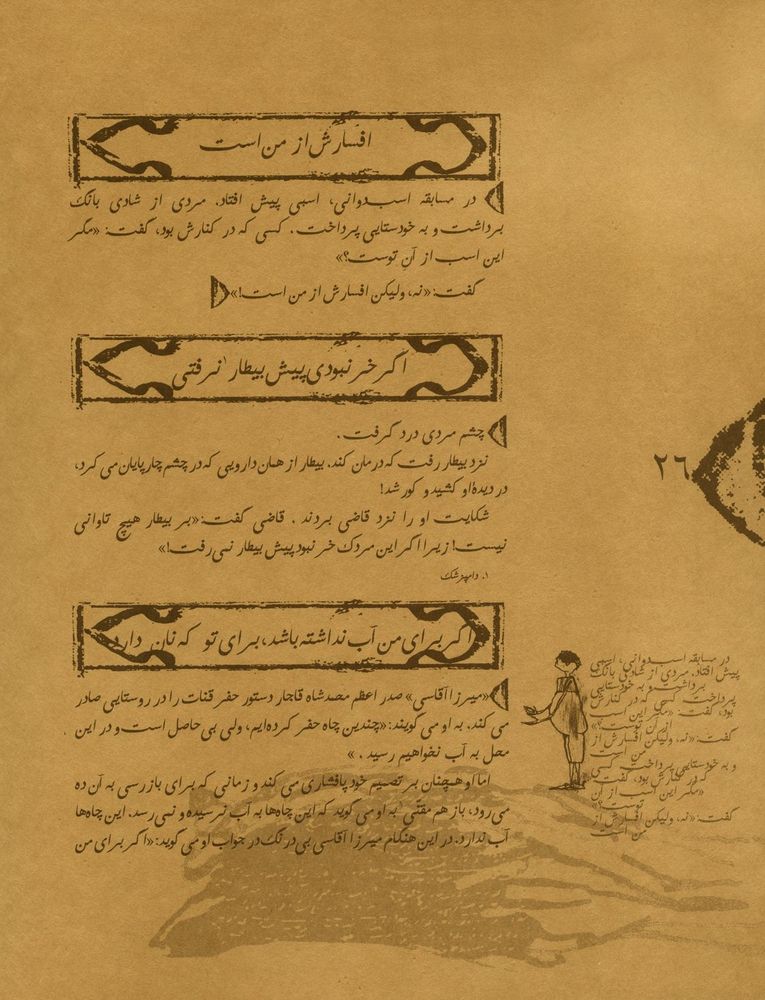 افسارش از من است
در مسابقه اسب‌دوانی، اسبی پیش افتاد. مردی از شادی بانگ
برداشت و به خودستایی پرداخت. کسی که در کنارش بود، گفت: «مگر
این اسب از آنِ توست؟»
گفت: «نه، ولیکن افسارش از من است!»
اگر خر نبودی پیش بیطار۱ نرفتی
چشم مردی درد گرفت.
نزد بیطار رفت که درمان کند. بیطار از همان دارویی که در چشم چارپایان می‌کرد،
در دیدۀ او کشید و کور شد!
شکایت او را نزد قاضی بردند. قاضی گفت: «بر بیطار هیچ تاوانی
نیست! زیرا اگر این مردک خر نبود پیش بیطار نمی‌رفت!»
۱. دامپزشک
اگر برای من آب نداشته باشد، برای تو که نان دارد
«میرزا آقاسی» صدر اعظم محمدشاه قاجار دستور حفر قنات را در روستایی صادر
می‌کند. به او می‌گویند: «چندین چاه حفر کرده‌ایم، ولی بی‌حاصل است و در این
محل به آب نخواهیم رسید.»
اما او همچنان بر تصمیم خود پافشاری می‌کند و زمانی که برای بازرسی به آن ده
می‌رود، باز هم مقنّی به او می‌گوید که این چاه‌ها به آب نرسیده و نمی‌رسد. این چاه‌ها
آب ندارد. در این هنگام میرزا آقاسی بی‌درنگ در جواب او می‌گوید: «اگر برای من
۲۶
در مسابقه اسب‌دوانی، اسبی
پیش افتاد. مردی از شادی بانگ
برداشت و به خودستایی
پرداخت. کسی که در کنارش
بود، گفت: «مگر این اسب
از آن توست؟»
گفت: «نه، ولیکن افسارش از
من است
و به خودستایی پرداخت. کسی
که در کنارش بود، گفت:
«مگر این اسب از آن
توست؟»
گفت: «نه، ولیکن افسارش از
من است